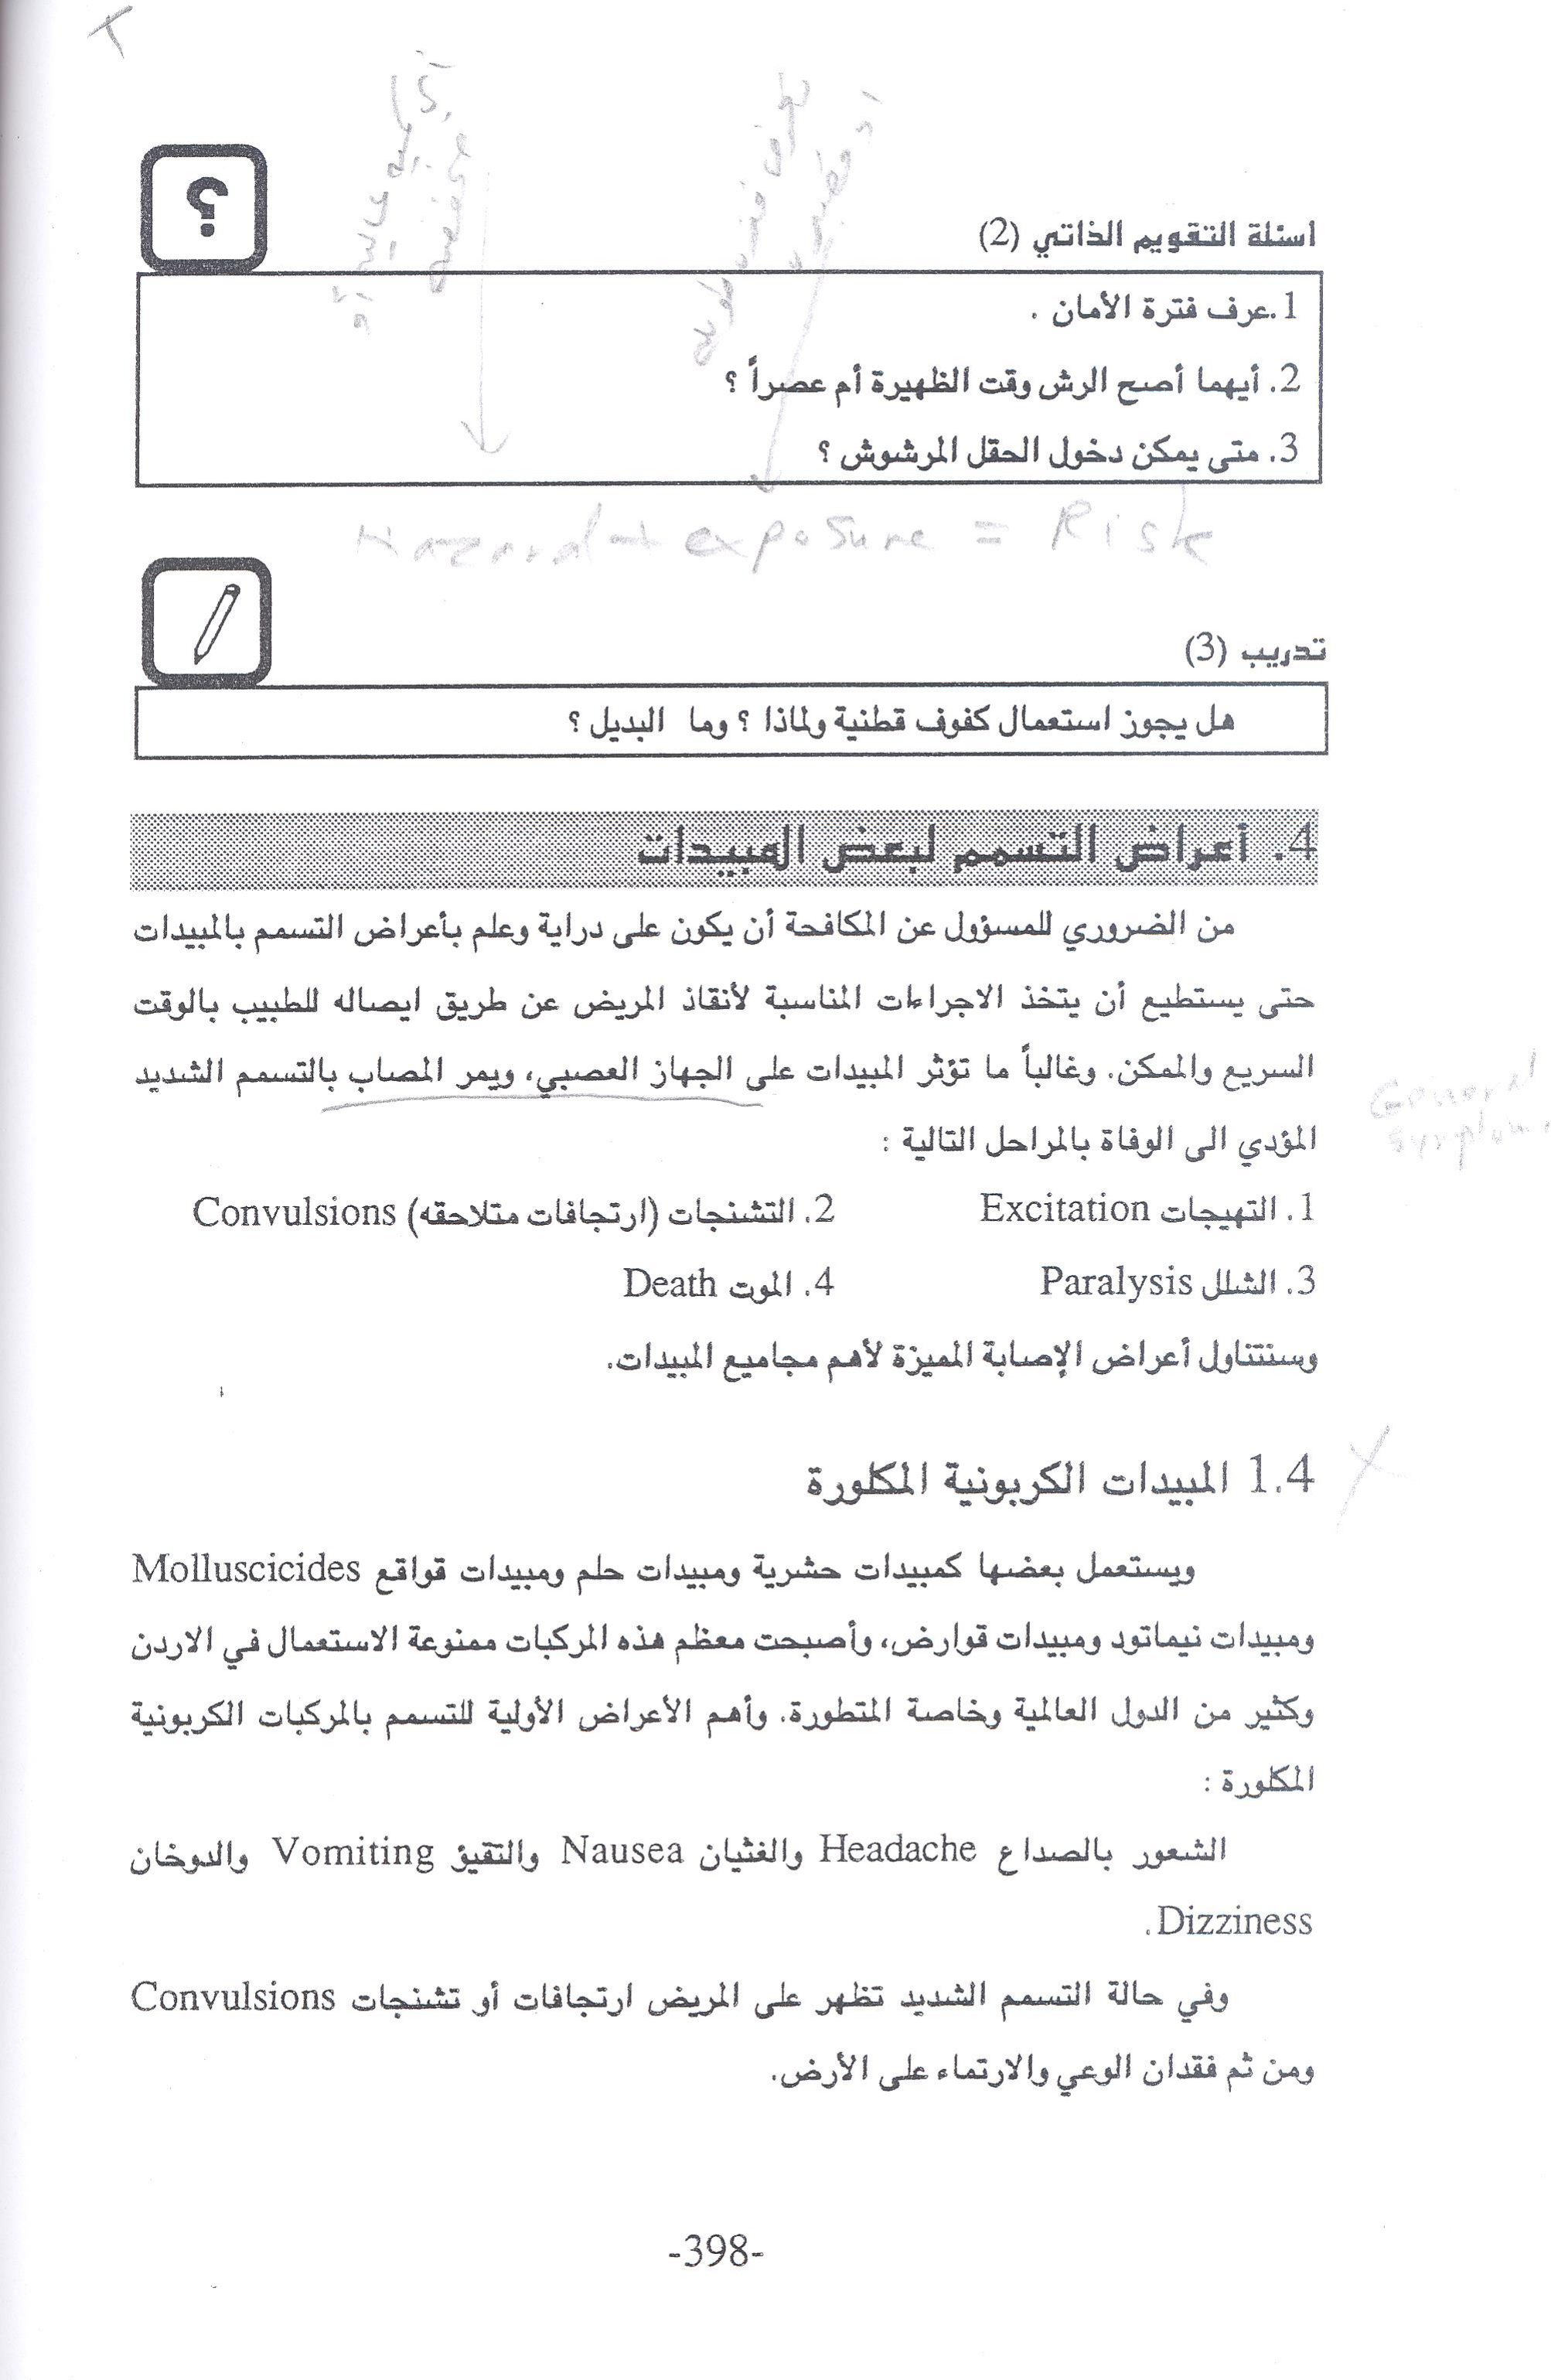 اسئلة التقويم الذاتي (2)
1.عرف فترة الأمان .
2. أيهما أصح الرش وقت الظهيرة أم عصراً ؟
3. متى يمكن دخول الحقل المرشوش ؟
Hazard + exposure = Risk
تدريب (3)
هل يجوز استعمال كفوف قطنية ولماذا ؟ وما البديل ؟
4. أعراض التسمم لبعض المبيدات
من الضروري للمسؤول عن المكافحة أن يكون على دراية وعلم بأعراض التسمم بالمبيدات
حتى يستطيع أن يتخذ الاجراءات المناسبة لأنقاذ المريض عن طريق ايصاله للطبيب بالوقت
السريع والممكن. وغالباً ما تؤثر المبيدات على الجهاز العصبي، ويمر المصاب بالتسمم الشديد
General
المؤدي الى الوفاة بالمراحل التالية :
1. التهيجات Excitation 2. التشنجات (ارتجافات متلاحقه) Convulsions
3. الشلل Paralysis 4. الموت Death
وسنتناول أعراض الإصابة المميزة لأهم مجاميع المبيدات.
1.4 المبيدات الكربونية المكلورة
ويستعمل بعضها كمبيدات حشرية ومبيدات حلم ومبيدات قواقع Molluscicides
ومبيدات نيماتود ومبيدات قوارض، وأصبحت معظم هذه المركبات ممنوعة الاستعمال في الاردن
وكثير من الدول العالمية وخاصة المتطورة. وأهم الأعراض الأولية للتسمم بالمركبات الكربونية
المكلورة :
الشعور بالصداع Headache والغثيان Nausea والتقيؤ Vomiting والدوخان
Dizziness.
وفي حالة التسمم الشديد تظهر على المريض ارتجافات أو تشنجات Convulsions
ومن ثم فقدان الوعي والارتماء على الأرض.
-398-